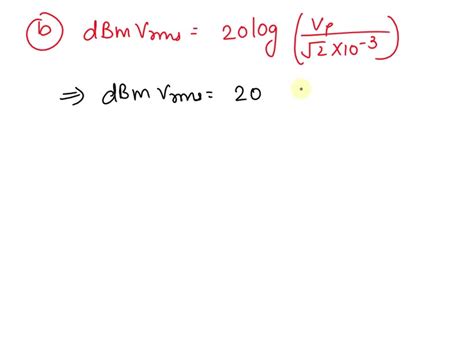 (b) dBmVrms = 20log (Vp / √2 × 10⁻³)
⇒ dBmVrms = 20